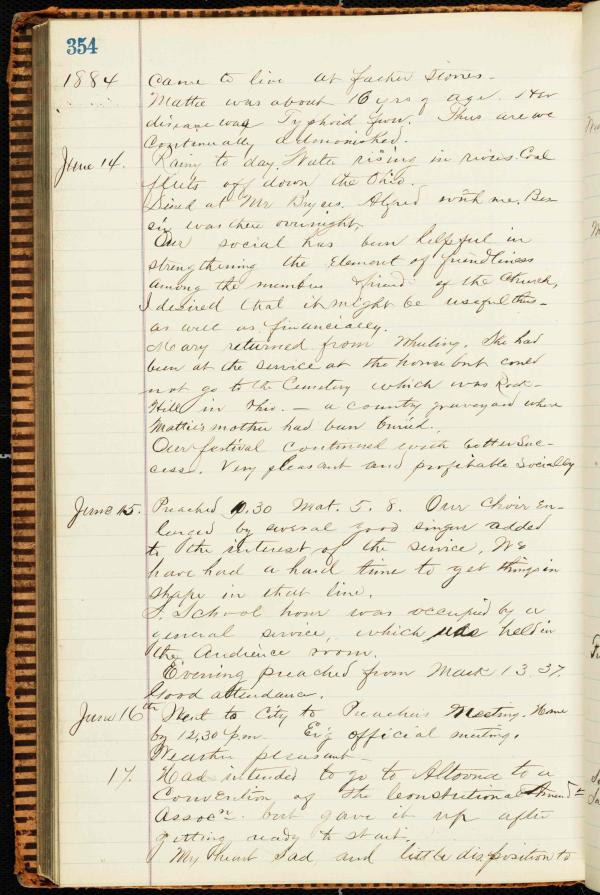 354
1884 Came to live at father Stones-
Mattie was about 16 yrs of age. Her
disease was Typhoid fever. Thus are we
Continually admonished.
June 14. Rainy to day. Water rising in rivers. Coal
fleets off down the Ohio.
Dined at Mr Bryces. Alfred with me. Bes
sie was there overnight.
Our social has been helpful in
strengthening the element of friendliness
among the members & friends of the Church,
I desired that it might be useful thus-
as well as financially.
Mary returned from Wheeling. She had
been at the service at the house but could
not go to the Cemetery which was Rock-
Hill in Ohio. - a country graveyard where
Mattie's mother had been buried.
Our festival continued with better Suc-
cess. Very pleasant and profitable Socially
June 15. Preached 10.30 Mat. 5. 8. Our Choir En-
larged by several good singers added
to the interest of the service. We
have had a hard time to get things in
shape in that line.
S. School hour was occupied by a
general service, which was held in
the Audience room.
Evening preached from Mark 13.37.
Good attendance.
June 16th Went to City to Preachers Meeting. Home
by 12,30 p.m. Ev'g official meeting.
Weather pleasant-
17. Had intended to go to Altoona to a
Convention of the Constitutional Amendt
Assocn. but gave it up after
getting ready to start.
My heart Sad, and little disposition to